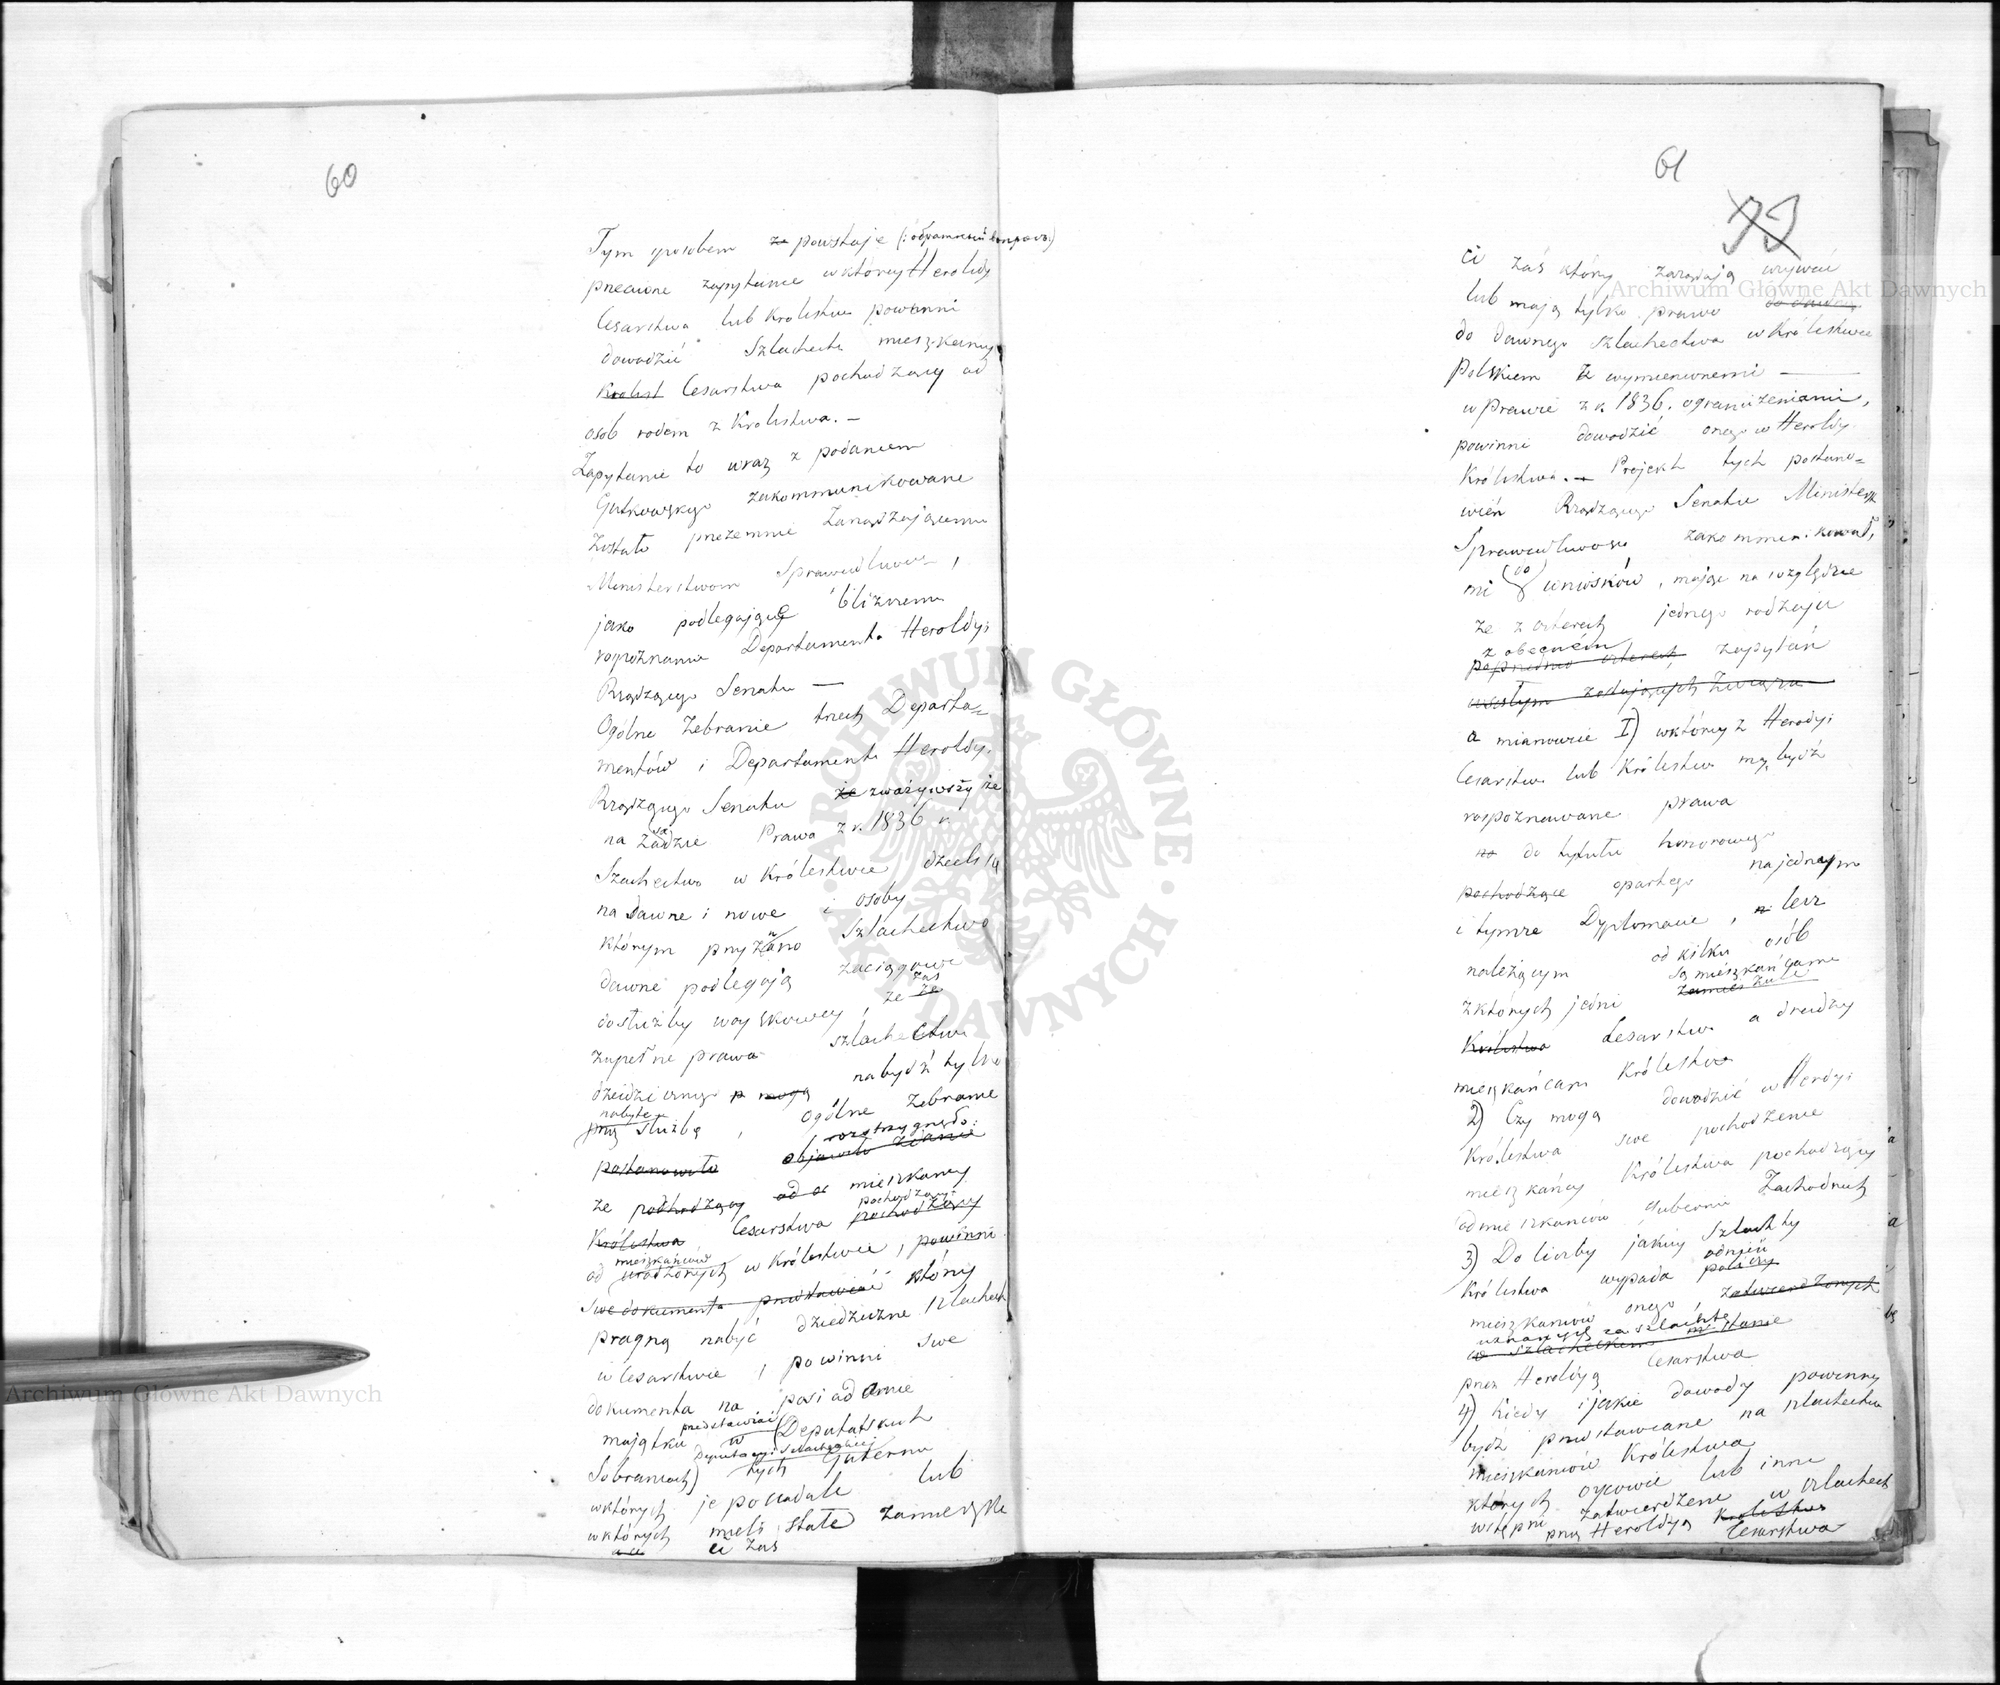 60
Tym sposobem ze powstaje (: обратный вопрос:)
przeciwne zapytanie w którey Heroldyi
Cesarstwa lub Królestwa powinni
dowodzić Szlachectwa mieszkańcy
Krolest Cesarstwa pochodzący od
osob rodem z Krolestwa. —
Zapytanie to wraz z podaniem
Gutkowskiego zakommunikowane
zostało przezemnie Zarządzającemu
Ministerstwem Sprawiedliwości,
jako podlegające bliższemu
rozpoznaniu Departamentu Heroldyi
Rządzącego Senatu —
Ogólne Zebranie trzech Departa=
mentów i Departamentu Heroldyi
Rządzącego Senatu że zważywszy że
na zasadzie Prawa z r. 1836 r.
Szlachectwo w Królestwie dzieli się
na dawne i nowe i osoby
którym przyznano Szlachectwo
dawne podlegają zaciągowi
zaś
do służby woyskowey, że że
zupełne prawa szlachectwa
dziedzicznego p mogą nabydź tylko
nabyte
przez służbę, Ogólne Zebranie
rozstrzygnęło:
postanowiło objawiło zdanie
że pochodzący od os mieszkańcy
pochodzący
Królestwa Cesarstwa pochodzący
mieszkańców
od urodzonych w Królestwie, powinni
swe dokumenta przedstawiać którzy
pragną nabyć dziedziczne szlachectwo
w Cesarstwie, powinni swe
dokumenta na posiadanie
przedstawiać
majątku w (Deputatskich
Deputacyi Szlacheckiej
Sobraniach) tych Gubernii
w których je posiadali lub
w których mieli stałe zamieszka
a ci ci zaś
61
ci zaś którzy żądają używać
lub mają tylko prawo do dawnego
do dawnego szlachectwa w Królestwie
Polskiem z wymienionemi —
w Prawie z r. 1836. ograniczeniami,
powinni dowodzić onego w Heroldyi
Królestwa. — Projekt tych postano=
wień Rządzącego Senatu Minister
Sprawiedliwości zakommunikował,
mi do wniosków, mając na względzie
że z czterech jednego rodzaju
z obecném
poprzednio czterech zapytań
a mianowicie I) w którey z Heroldyi
Cesarstwa lub Królestwa mają bydź
rozpoznawane prawa
na do tytułu honorowego
pochodzące opartego na jednym
i tymże Dyplomacie, n lecz
należącym od kilku osób
są mieszkańcami
z których jedni zamieszkali
Królestwa Cesarstwa a drudzy
mieszkańcami Królestwa
2) Czy mogą dowodzić w Heroldyi
Królestwa swe pochodzenie
mieszkańcy Królestwa pochodzący
od mieszkańców Gubernii Zachodnich
3) Do liczby jakiey Szlachty
odnieść
Królestwa wypada policzyć
mieszkańców onego, zatwierdzonych
uznanych za szlachtę
w szlacheckim stanie
przez Heroldyą Cesarstwa
4) kiedy i jakie dowody powinny
bydź przedstawiane na szlachectwo
mieszkańców Królestwa
których oycowie lub inni
wstępni zatwierdzeni w szlachect
przez Heroldyą Królestwa
Cesarstwa
Archiwum Główne Akt Dawnych
Archiwum Główne Akt Dawnych
ARCHIWUM GŁÓWNE AKT DAWNYCH